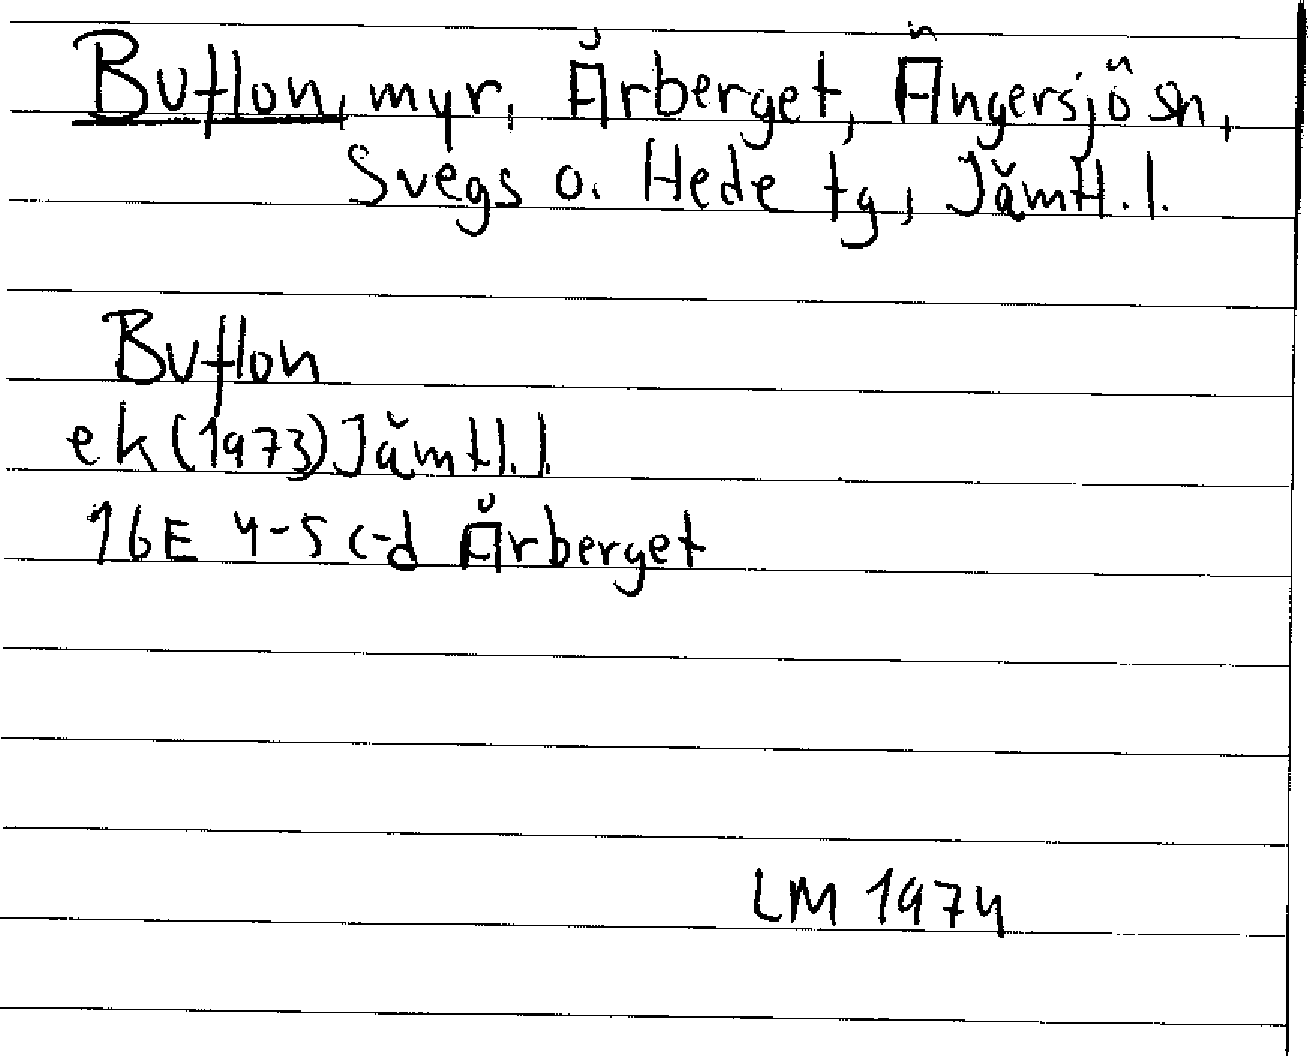 Buflon, myr, Årberget, Ängersjö sn,
Svegs o. Hede tg, Jämtl. l.
Buflon
ek (1973) Jämtl. l.
16E 4-5 c-d Årberget
LM 1974